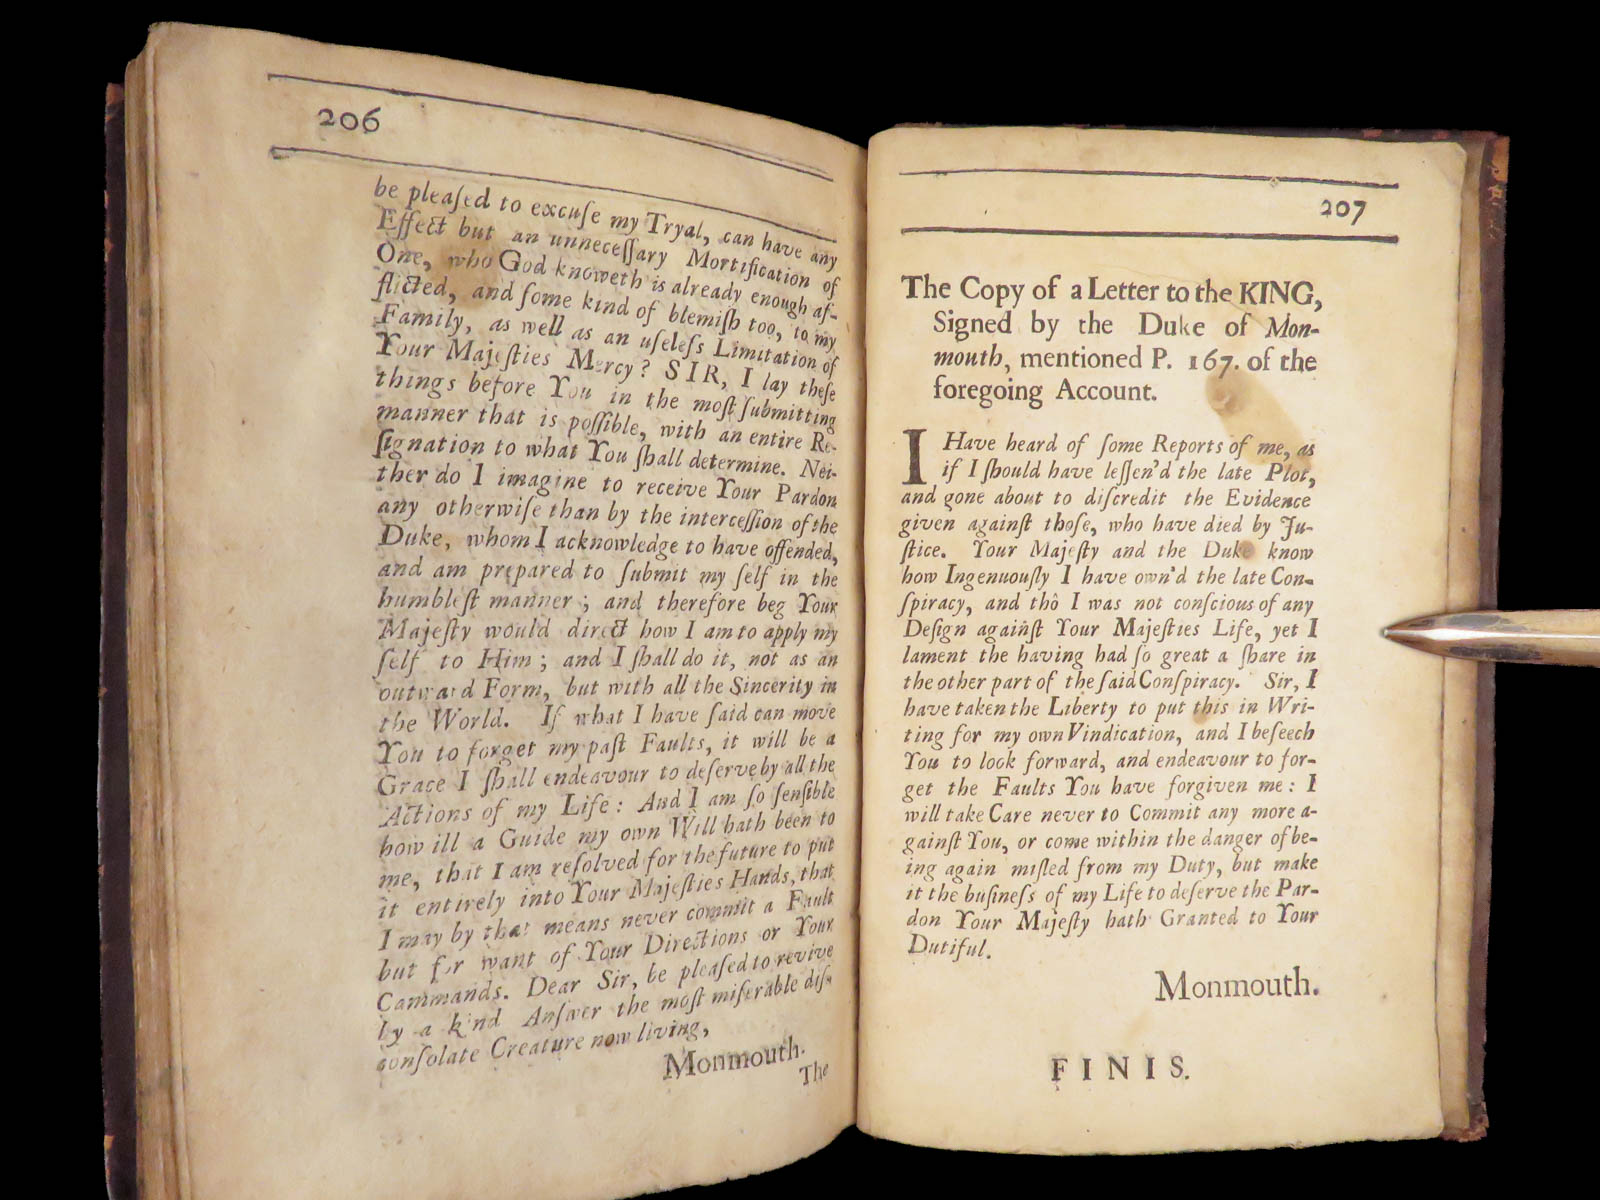 206
be pleaſed to excuſe my Tryal, can have any
Effect but an unneceſſary Mortification of
One, who God knoweth is already enough af-
flicted, and ſome kind of blemiſh too, to my
Family, as well as an uſeleſs Limitation of
Your Majeſties Mercy? SIR, I lay theſe
things before You in the moſt ſubmitting
manner that is poſſible, with an entire Re-
ſignation to what You ſhall determine. Nei-
ther do I imagine to receive Your Pardon
any otherwiſe than by the interceſſion of the
Duke, whom I acknowledge to have offended,
and am prepared to ſubmit my ſelf in the
humbleſt manner; and therefore beg Your
Majeſty would direct how I am to apply my
ſelf to Him; and I ſhall do it, not as an
outward Form, but with all the Sincerity in
the World. If what I have ſaid can move
You to forget my paſt Faults, it will be a
Grace I ſhall endeavour to deſerve by all the
Actions of my Life: And I am ſo ſenſible
how ill a Guide my own Will hath been to
me, that I am reſolved for the future to put
it entirely into Your Majeſties Hands, that
I may by that means never commit a Fault
but for want of Your Directions or Your
Commands. Dear Sir, be pleaſed to revive
by a kind Anſwer the moſt miſerable diſ-
conſolate Creature now living,
Monmouth.
The
207
The Copy of a Letter to the KING,
Signed by the Duke of Mon-
mouth, mentioned P. 167. of the
foregoing Account.
I Have heard of ſome Reports of me, as
if I ſhould have leſſen'd the late Plot,
and gone about to diſcredit the Evidence
given againſt thoſe, who have died by Ju-
ſtice. Your Majeſty and the Duke know
how Ingenuouſly I have own'd the late Con-
ſpiracy, and thô I was not conſcious of any
Deſign againſt Your Majeſties Life, yet I
lament the having had ſo great a ſhare in
the other part of the ſaid Conſpiracy. Sir, I
have taken the Liberty to put this in Wri-
ting for my own Vindication, and I beſeech
You to look forward, and endeavour to for-
get the Faults You have forgiven me: I
will take Care never to Commit any more a-
gainſt You, or come within the danger of be-
ing again miſled from my Duty, but make
it the buſineſs of my Life to deſerve the Par-
don Your Majeſty hath Granted to Your
Dutiful.
Monmouth.
FINIS.